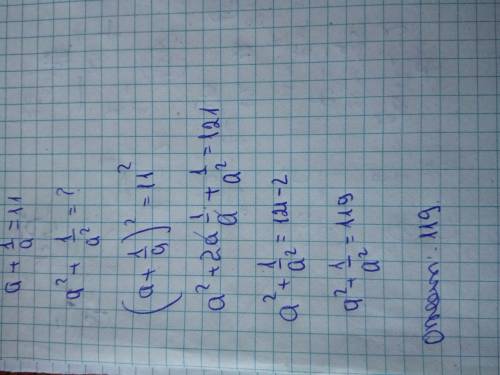 a + 1/a = 11
a² + 1/a² = ?
(a + 1/a)² = 11²
a² + 2a 1/a + 1/a² = 121
a² + 1/a² = 121-2
a² + 1/a² = 119
Ответ: 119.